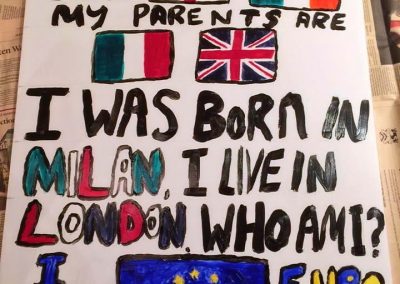 MY PARENTS ARE
I WAS BORN IN
MILAN, I LIVE IN
LONDON. WHO AM I?
I